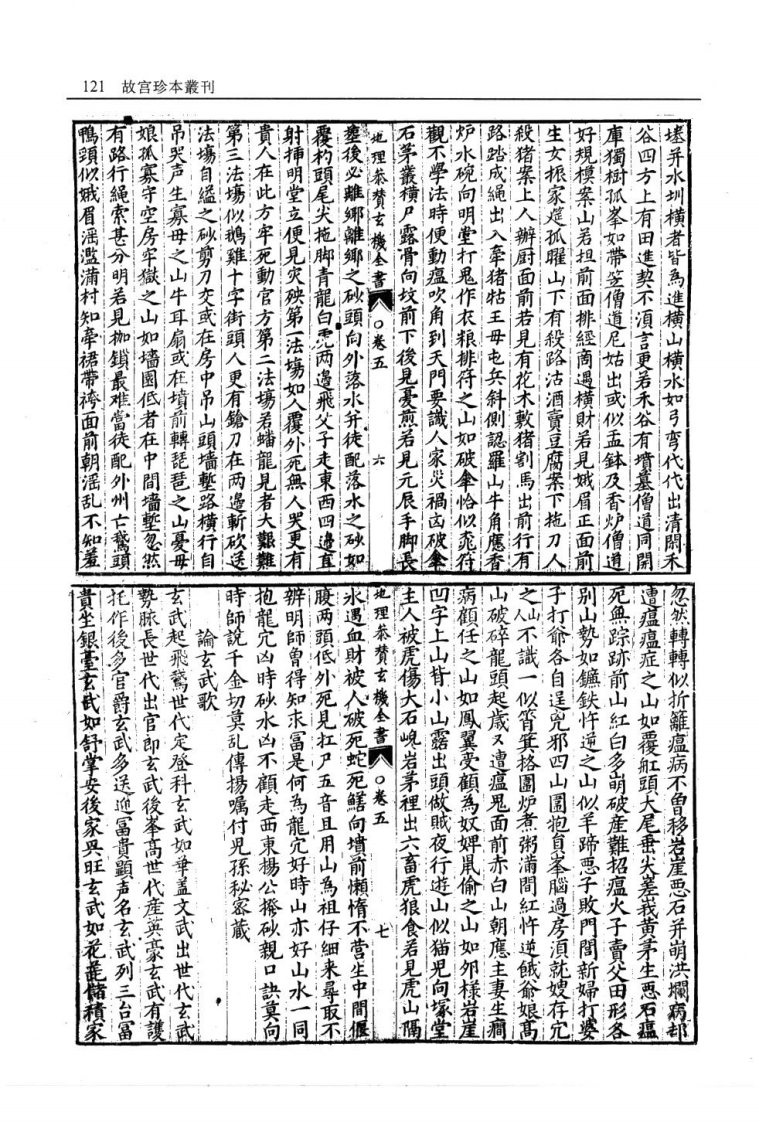 121 故宫珍本叢刊
塟并水圳橫者皆為進橫山橫水如弓弯代代出清閒禾
谷四方上有田進契不湏言更若禾谷有墳墓僧道同開
庫獨樹孤峯如帶笠僧道尼姑出或似盂鉢及香炉僧道
好規模案山若担前面排經商遇橫財若見娥眉正面前
生女振家筵孤曜山下有殺路沽酒賣豆腐案下拖刀人
殺猪案上人辦厨面前若見有花木數猪割馬出前行有
路踏成繩出入牽猪牯王母屯兵斜側認羅山牛角應香
炉水碗向明堂打鬼作衣粮排符之山如破傘恰似𠒋符
觀不學法時便動瘟吹角到天門要識人家災禍凶破傘
石茅叢橫尸露骨向坟前下後見憂煎若見元辰手脚長
地理叅賛玄機全書 〇卷五 六
塟後必離鄉離鄉之砂頭向外落水并徒配落水之砂如
覆杓頭尾尖拖脚青龍白虎两邊飛父子走東西四邊直
射挿明堂立便見灾殃第一法塲如人覆外死無人哭更有
貴人在此方牢死動官方第二法塲若蟠龍見者大艱難
第三法塲似鵝雞十字街頭人更有鎗刀在两邊斬砍送
法塲自縊之砂剪刀交或在房中吊山頭墻塹路橫行自
吊哭声生寡母之山牛耳扇或在墳前轉琵琶之山憂母
娘孤寡守空房牢獄之山如墻圍低者在中間墻塹忽然
有路行繩索甚分明若見枷鎖最难當徒配外州亡鵞頭
鴨頭似娥眉滛濫滿村知牽裙帶袴面前朝滛乱不知羞
忽然轉轉似折籬瘟病不曽移岩崖恶石并崩洪爛病却
遭瘟瘟症之山如覆舡頭大尾垂尖差峩黄茅生恶石瘟
死無踪跡前山紅白多崩破産難招瘟火子賣父田形各
别山勢如鐮鈇忤逆之山似羊蹄恶子敗門閭新婦打婆
子打爺各自逞兇邪四山圍抱貟峯腦過房湏就嫂存宂
之山不識一似筲箕格圍炉煮粥滿間紅忤逆餓爺娘髙
山破碎龍頭起歳又遭瘟鬼面前赤白山朝應主妻生癎
病顧任之山如鳳翼受顧為奴婢鼡偷之山如邜様岩崖
凹字上山皆小山露出頭做賊夜行遊山似猫児向塚堂
主人被虎傷大石峴岩茅裡出六畜虎狼食若見虎山隔
地理叅賛玄機全書 〇卷五 七
水遇血財被人破死蛇死鱔向墳前懶惰不营生中間偃
腹两頭低外死見扛尸五音且用山為祖仔細来尋取不
辨明師曽得知求冨是何為龍宂好時山亦好山水一同
抱龍宂凶時砂水凶不顧走西東楊公撥砂親口訣莫向
時師說千金切莫乱傳揚嘱付児孫秘宻蔵
論玄武歌
玄武起飛鵞世代定登科玄武如華盖文武出世代玄武
勢脉長世代出官郎玄武後峯髙世代産英豪玄武有護
托作後多官爵玄武多送迎冨貴顯声名玄武列三台冨
貴坐銀臺玄武如舒掌安後家興旺玄武如花蕋儲積家